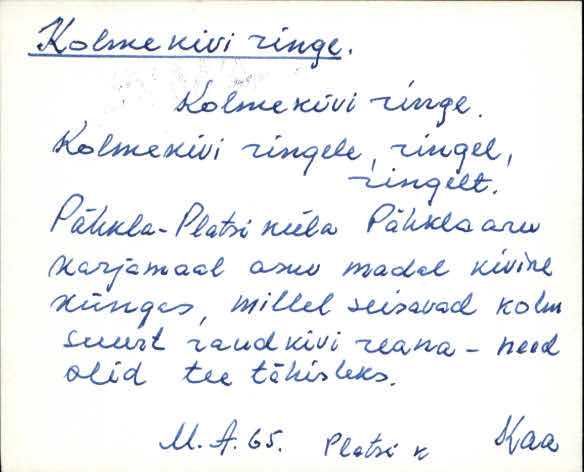 Kolmekivi ringe.
Kolmekivi ringe.
Kolmekivi ringele, ringel,
ringelt.
Pähkla-Platsi küla Pähkla aru
karjamaal asuv madal kivine
küngas, millel seisavad kolm
suurt raudkivi reana - need
olid tee tähisteks.
M. A. 65. Platsi k Kaa